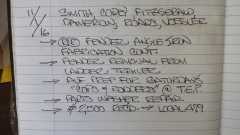 11/16 SMITH, CORP, FITZGERALD,
CAMERON, ROARK, VOSHER
→ FENDER ANGLE IRON
FABRICATION CONT.
→ FENDER REMOVAL FROM
LADDER TRAILER
→ PREP FOR SATURDAY'S
@ T.F.P.
→ PARTS WASHER REPAIR
→ $2,500 REC'D → LOCAL 479